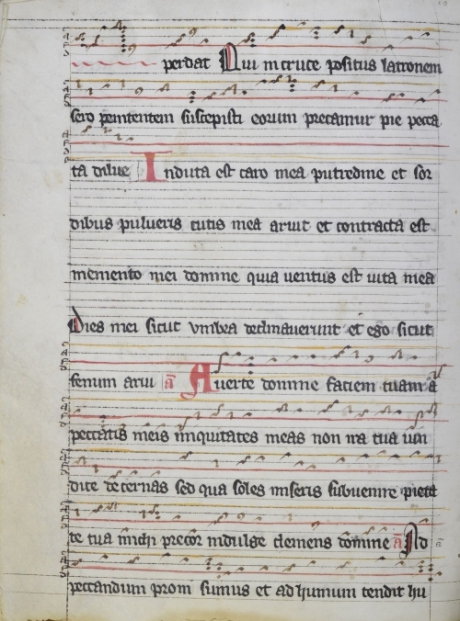 perdat Qui in cruce positus latronem
sero penitentem suscepisti eorum precamur pie pecca
ta dilue Induta est caro mea putredine et sor
dibus pulueris cutis mea aruit et contracta est
memento mei domine quia uentus est uita mea
Dies mei sicut vmbra declinauerunt et ego sicut
fenum arui a Auerte domine faciem tuam a
peccatis meis iniquitates meas non ira tua
dite decernas sed qua soles miseris subuenire pieta
te tua michi precor indulge clemens domine a Ad
peccandum proni sumus et ad humum tendit hu